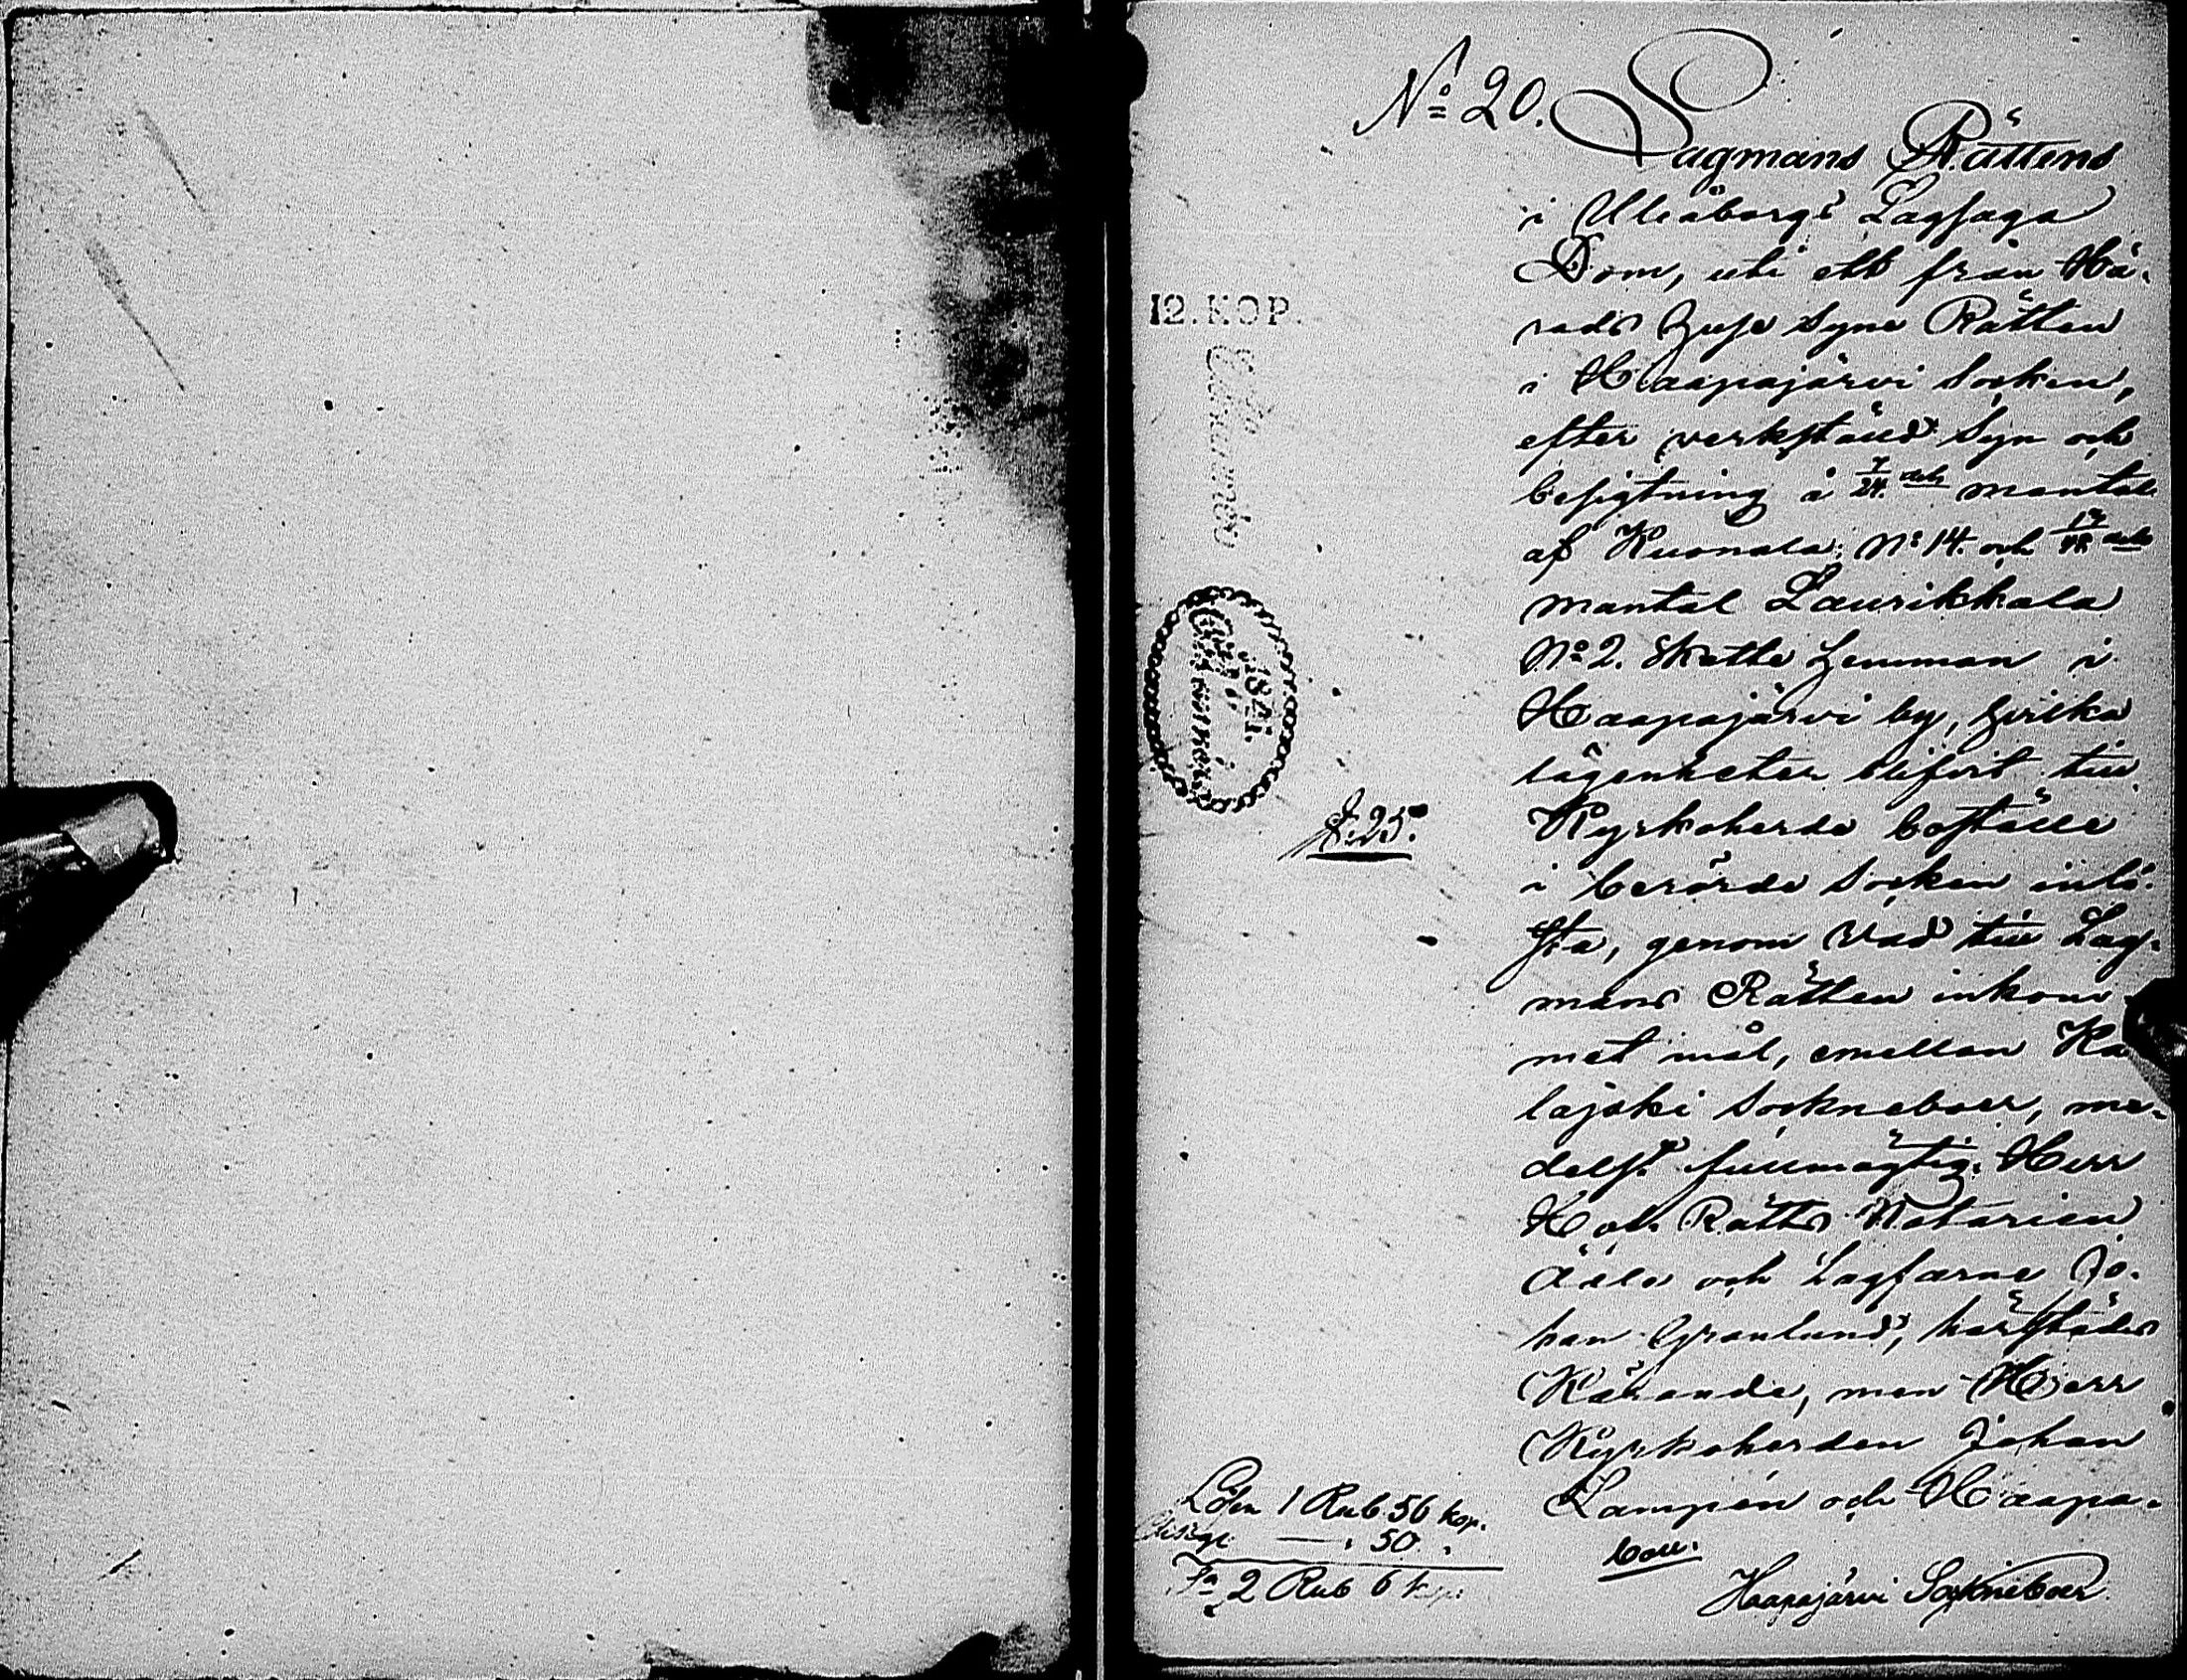 No 20.
Lagmans Rättens
i Uleåborgs Lagsaga
Dom, uti ett från Hä-
rads Huse Syne Rätten
i Haapajärvi Socken,
efter verkställd Syn och
besigtning å 7/24 dels mantal
af Kuonala No 14. och dels
mantal Laurikkala
No 2. Skatte hemman i
Haapajärvi by, hvilka
lägenheter blifvit till
Kyrkoherde boställe
i berörde Socken inlö-
sta, genom vad till Lag-
mans Rätten inkom-
met mål, emellan Ka
lajoki Sockneboer, me-
delst fullmägtig. Herr
Hof Rätts Notarien
Ädle och Lagfarne Jo-
han Granlund, härstädes
Kärande, men Herr
Kyrkoherden Johan
Lampén och Haapa-
Coll.
Haapajärvi Sockneboer.
12. KOP.
1841.
§. 25.
Lösen 1 Rub. 56 kop.
— " 50 "
Sa 2 Rub 6 kop.